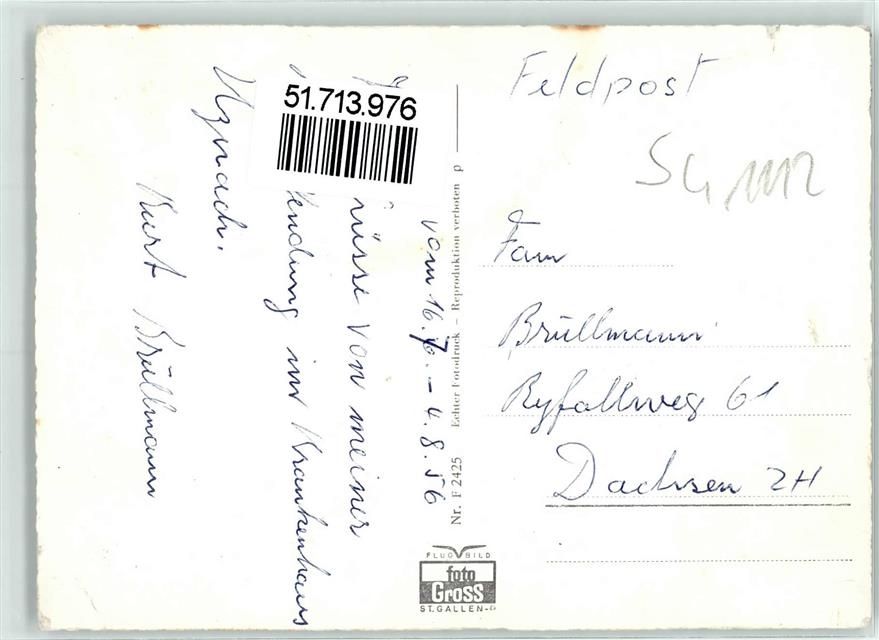 Feldpost
SG 1112
Fam
Brüllmann
Ryfallweg 61
Dachsen ZH
vom 16.7. – 4.8.56
von meiner
im Krankenhaus
Uznach.
Kurt Brüllmann
51.713.976
Nr. F 2425 Echter Fotodruck – Reproduktion verboten p
FLUGBILD
foto
Gross
ST.GALLEN